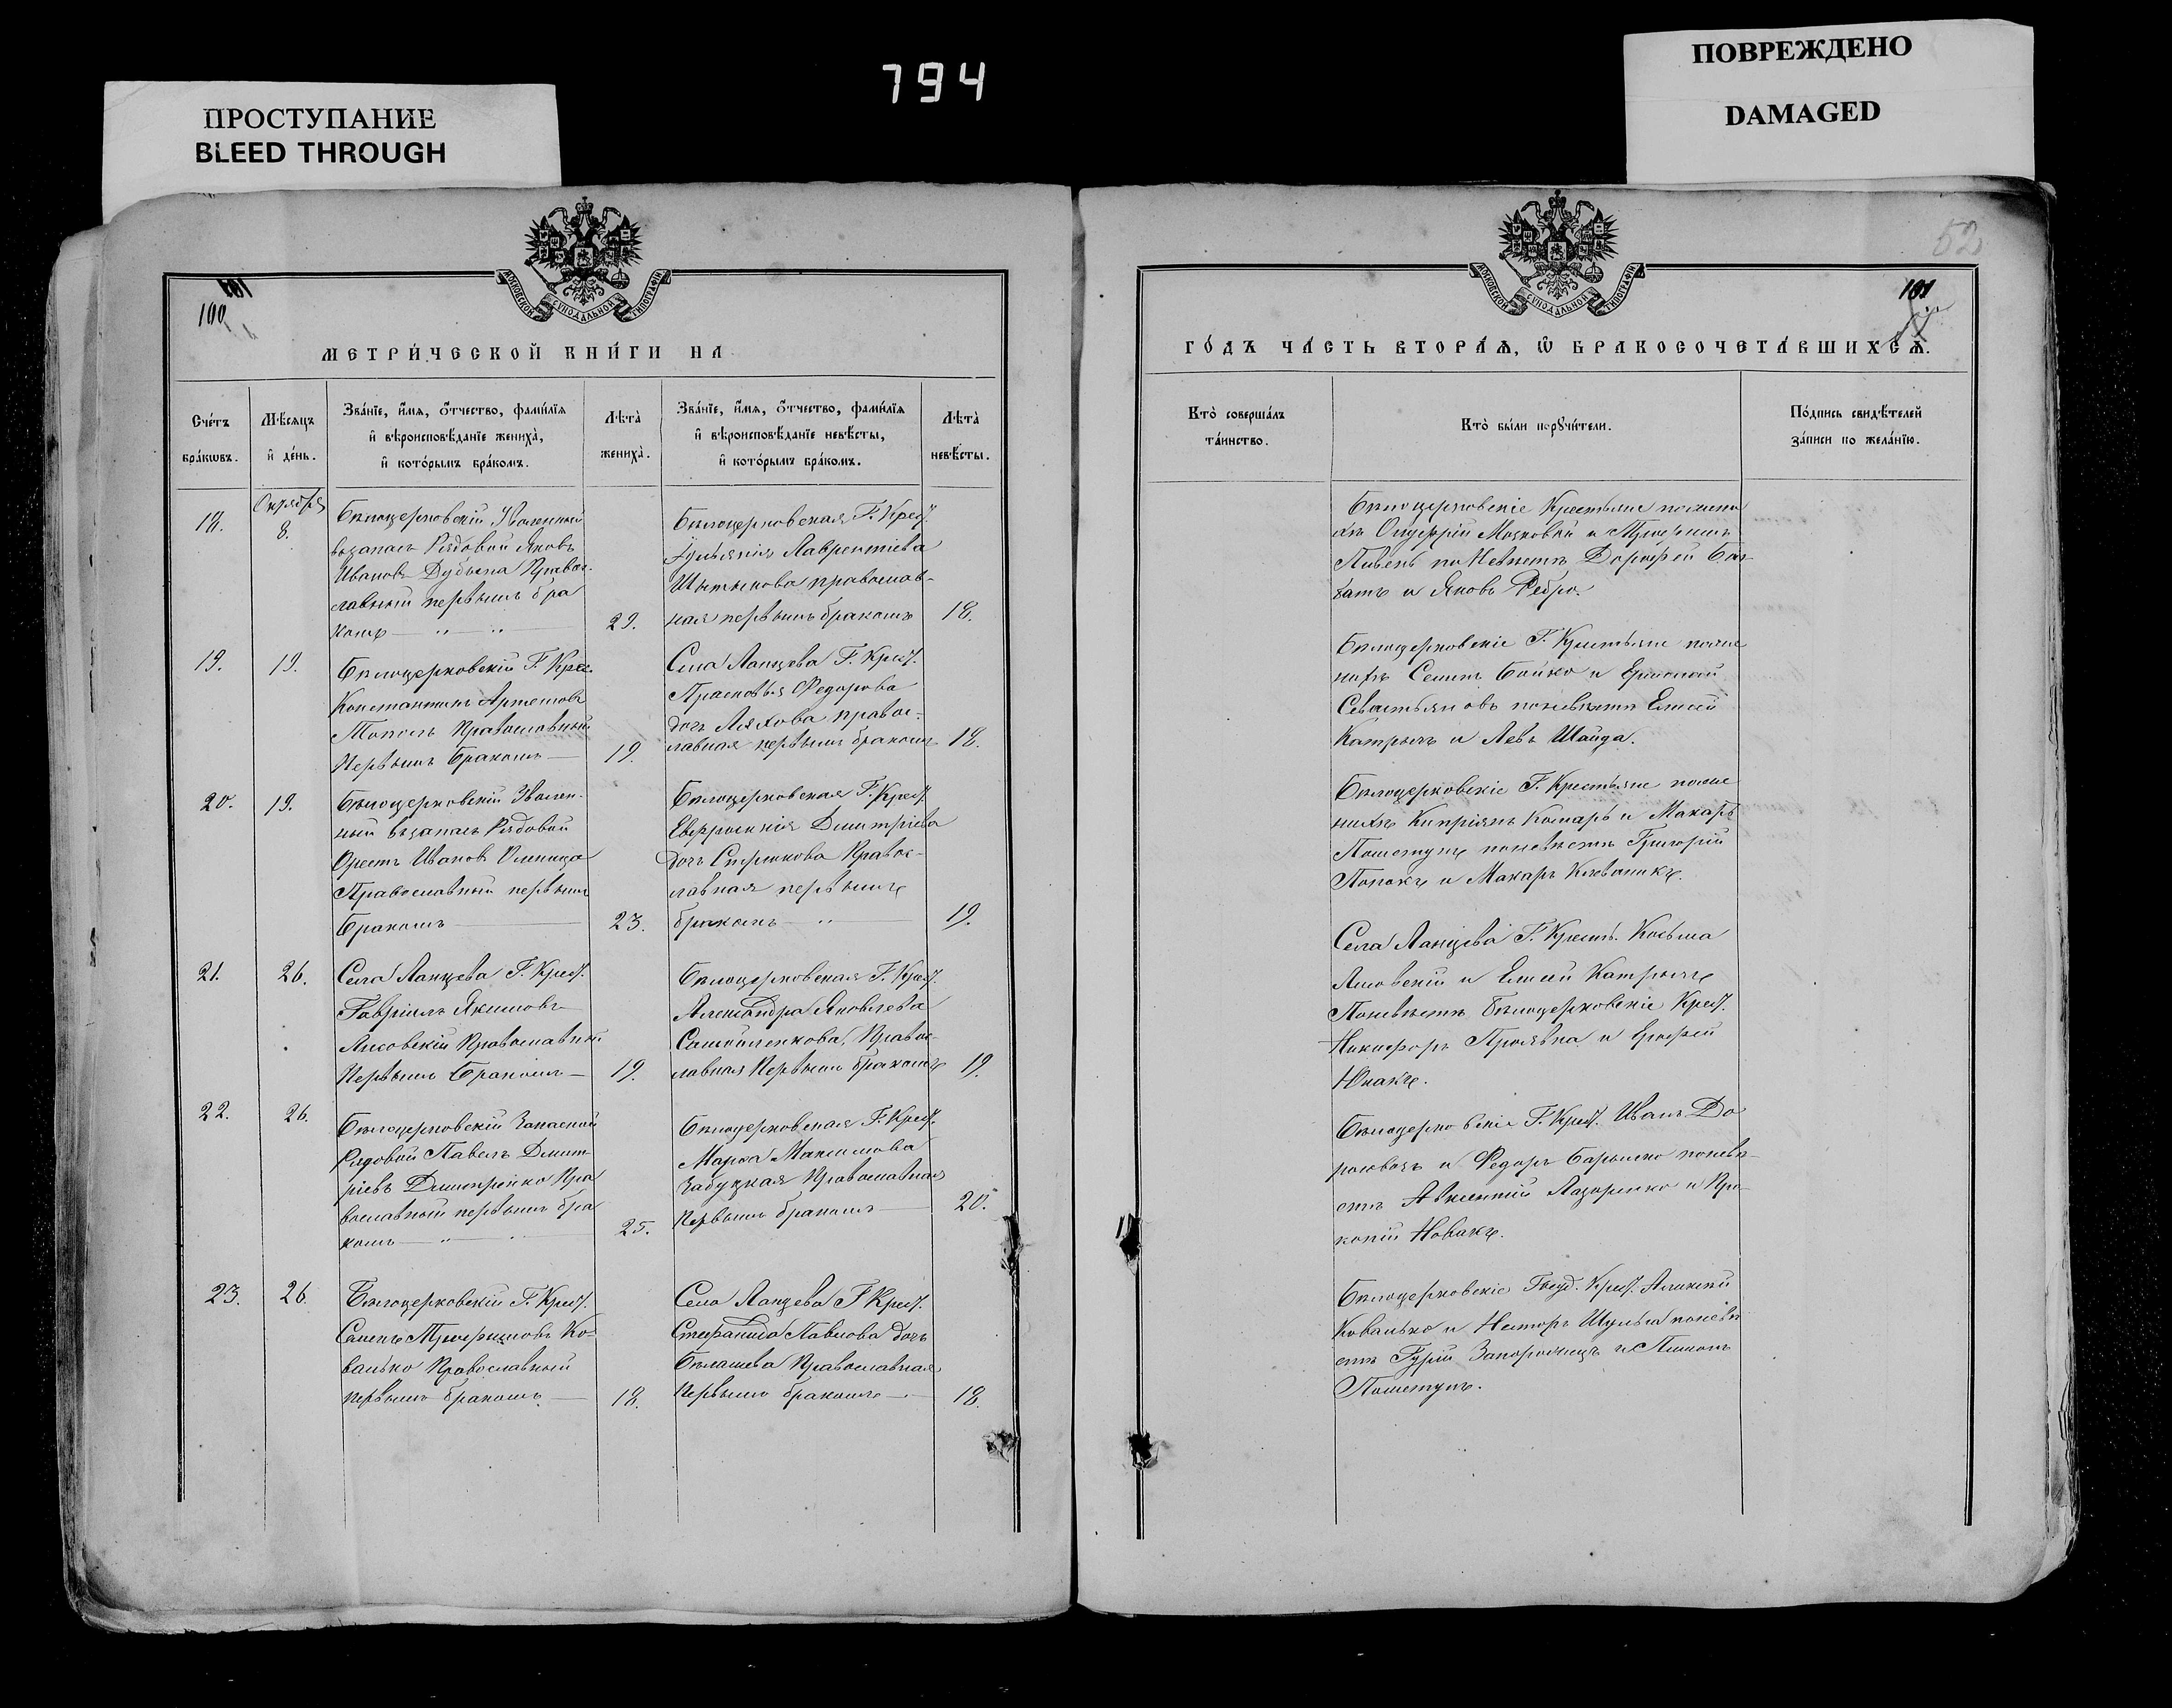 794
ПРОСТУПАНИЕ
BLEED THROUGH
ПОВРЕЖДЕНО
DAMAGED
МОСКОВСКОЙ СѴНОДАЛЬНОЙ ТИПОГРАФІИ
100
МЕТРИ́ЧЕСКОЙ КНИ́ГИ НА
Сче́тъ бра́кѡвъ.
Мѣ́сяцъ и҆ де́нь.
Зва́нїе, и҆́мѧ, ѻ҆́тчество, фами́лїѧ
и҆ вѣроисповѣ́данїе жениха̀,
и҆ кото́рымъ бра́комъ.
Лѣта̀ жениха̀.
Зва́нїе, и҆́мѧ, ѻ҆́тчество, фами́лїѧ
и҆ вѣроисповѣ́данїе невѣ́сты,
и҆ кото́рымъ бра́комъ.
Лѣта̀ невѣ́сты.
18.
Октября
8.
Бѣлоцерковскій Уволенный
въ запасъ Рядовой Яковъ
Ивановъ Дубына Правос-
лавный первымъ бра
комъ
29.
Бѣлоцерковская Г. Крест.
Лаврентіева
православ-
ная первымъ бракомъ
18.
19.
19.
Бѣлоцерковскій Г. Крес.
Константинъ Артемовъ
Православный
Первымъ Бракомъ
19.
Села Ланцева Г. Крест.
Прасковья Федорова
дочь Ляхова правос-
лавная первымъ бракомъ
18.
20.
19.
Бѣлоцерковскій Уволен-
ный въ запасъ Рядовой
Орестъ Ивановъ
Православный первымъ
Бракомъ
23.
Бѣлоцерковская Г. Крест.
Евфросинія Дмитріева
дочь Правос-
лавная первымъ
бракомъ
19.
21.
26.
Села Ланцева Г. Крест.
Гавріилъ Якимовъ
Лисовскій Православный
Первымъ Бракомъ
19.
Бѣлоцерковская Г. Крест.
Александра Яковлева
Самойленкова, Правос-
лавная Первымъ бракомъ
19.
22.
26.
Бѣлоцерковскій Запасной
Рядовой Павелъ Дмит-
ріевъ Дмитренко Пра
вославный первымъ бра
комъ
25.
Бѣлоцерковская Г. Крест.
Марѳа Максимова
Православная
Первымъ бракомъ
20.
23.
26.
Бѣлоцерковскій Г. Крест.
Семенъ Ко-
валько Православный
первымъ бракомъ
18.
Села Ланцева Г. Крест.
Стефанида Павлова дочь
Бѣлашева Православная
Первымъ бракомъ
18.
52
101
МОСКОВСКОЙ СѴНОДАЛЬНОЙ ТИПОГРАФІИ
ГО́ДЪ ЧА́СТЬ ВТОРА́Ѧ, Ѽ БРАКОСОЧЕТА́ВШИХСѦ.
Кто̀ соверша́лъ та́инство.
Кто̀ бы́ли порꙋчи́тели.
По́дпись свидѣ́телей за́писи по жела́нїю.
Бѣлоцерковскіе Крестьяне по жени
хѣ и
по Невѣстѣ Дорофей
и Яковъ Ребро.
Бѣлоцерковскіе Г. Крестьяне по же
нихѣ Семенъ Бойко и
Севастьяновъ по невѣстѣ Елисей
Катрычъ и Левъ Шайда.
Бѣлоцерковскіе Г. Крестьяне по же
нихѣ Кипріянъ Комаръ и Макаръ
Пошетунъ по невѣстѣ Григорій
и Макаръ
Села Ланцева Г. Крест. Косьма
Лисовскій и Елисей Катрычъ
По невѣстѣ Бѣлоцерковскіе Крест.
Никифоръ и Ерофей
Юнакъ.
Бѣлоцерковскіе Г. Крест. Иванъ До
и Федоръ по невѣ-
стѣ Авксентій Лазоренко и Про-
копій Новакъ.
Бѣлоцерковскіе Госуд. Крест. Алексѣй
Ковалько и Несторъ Шульга по невѣ
стѣ Гурій Запорожецъ и
Пошетунъ.